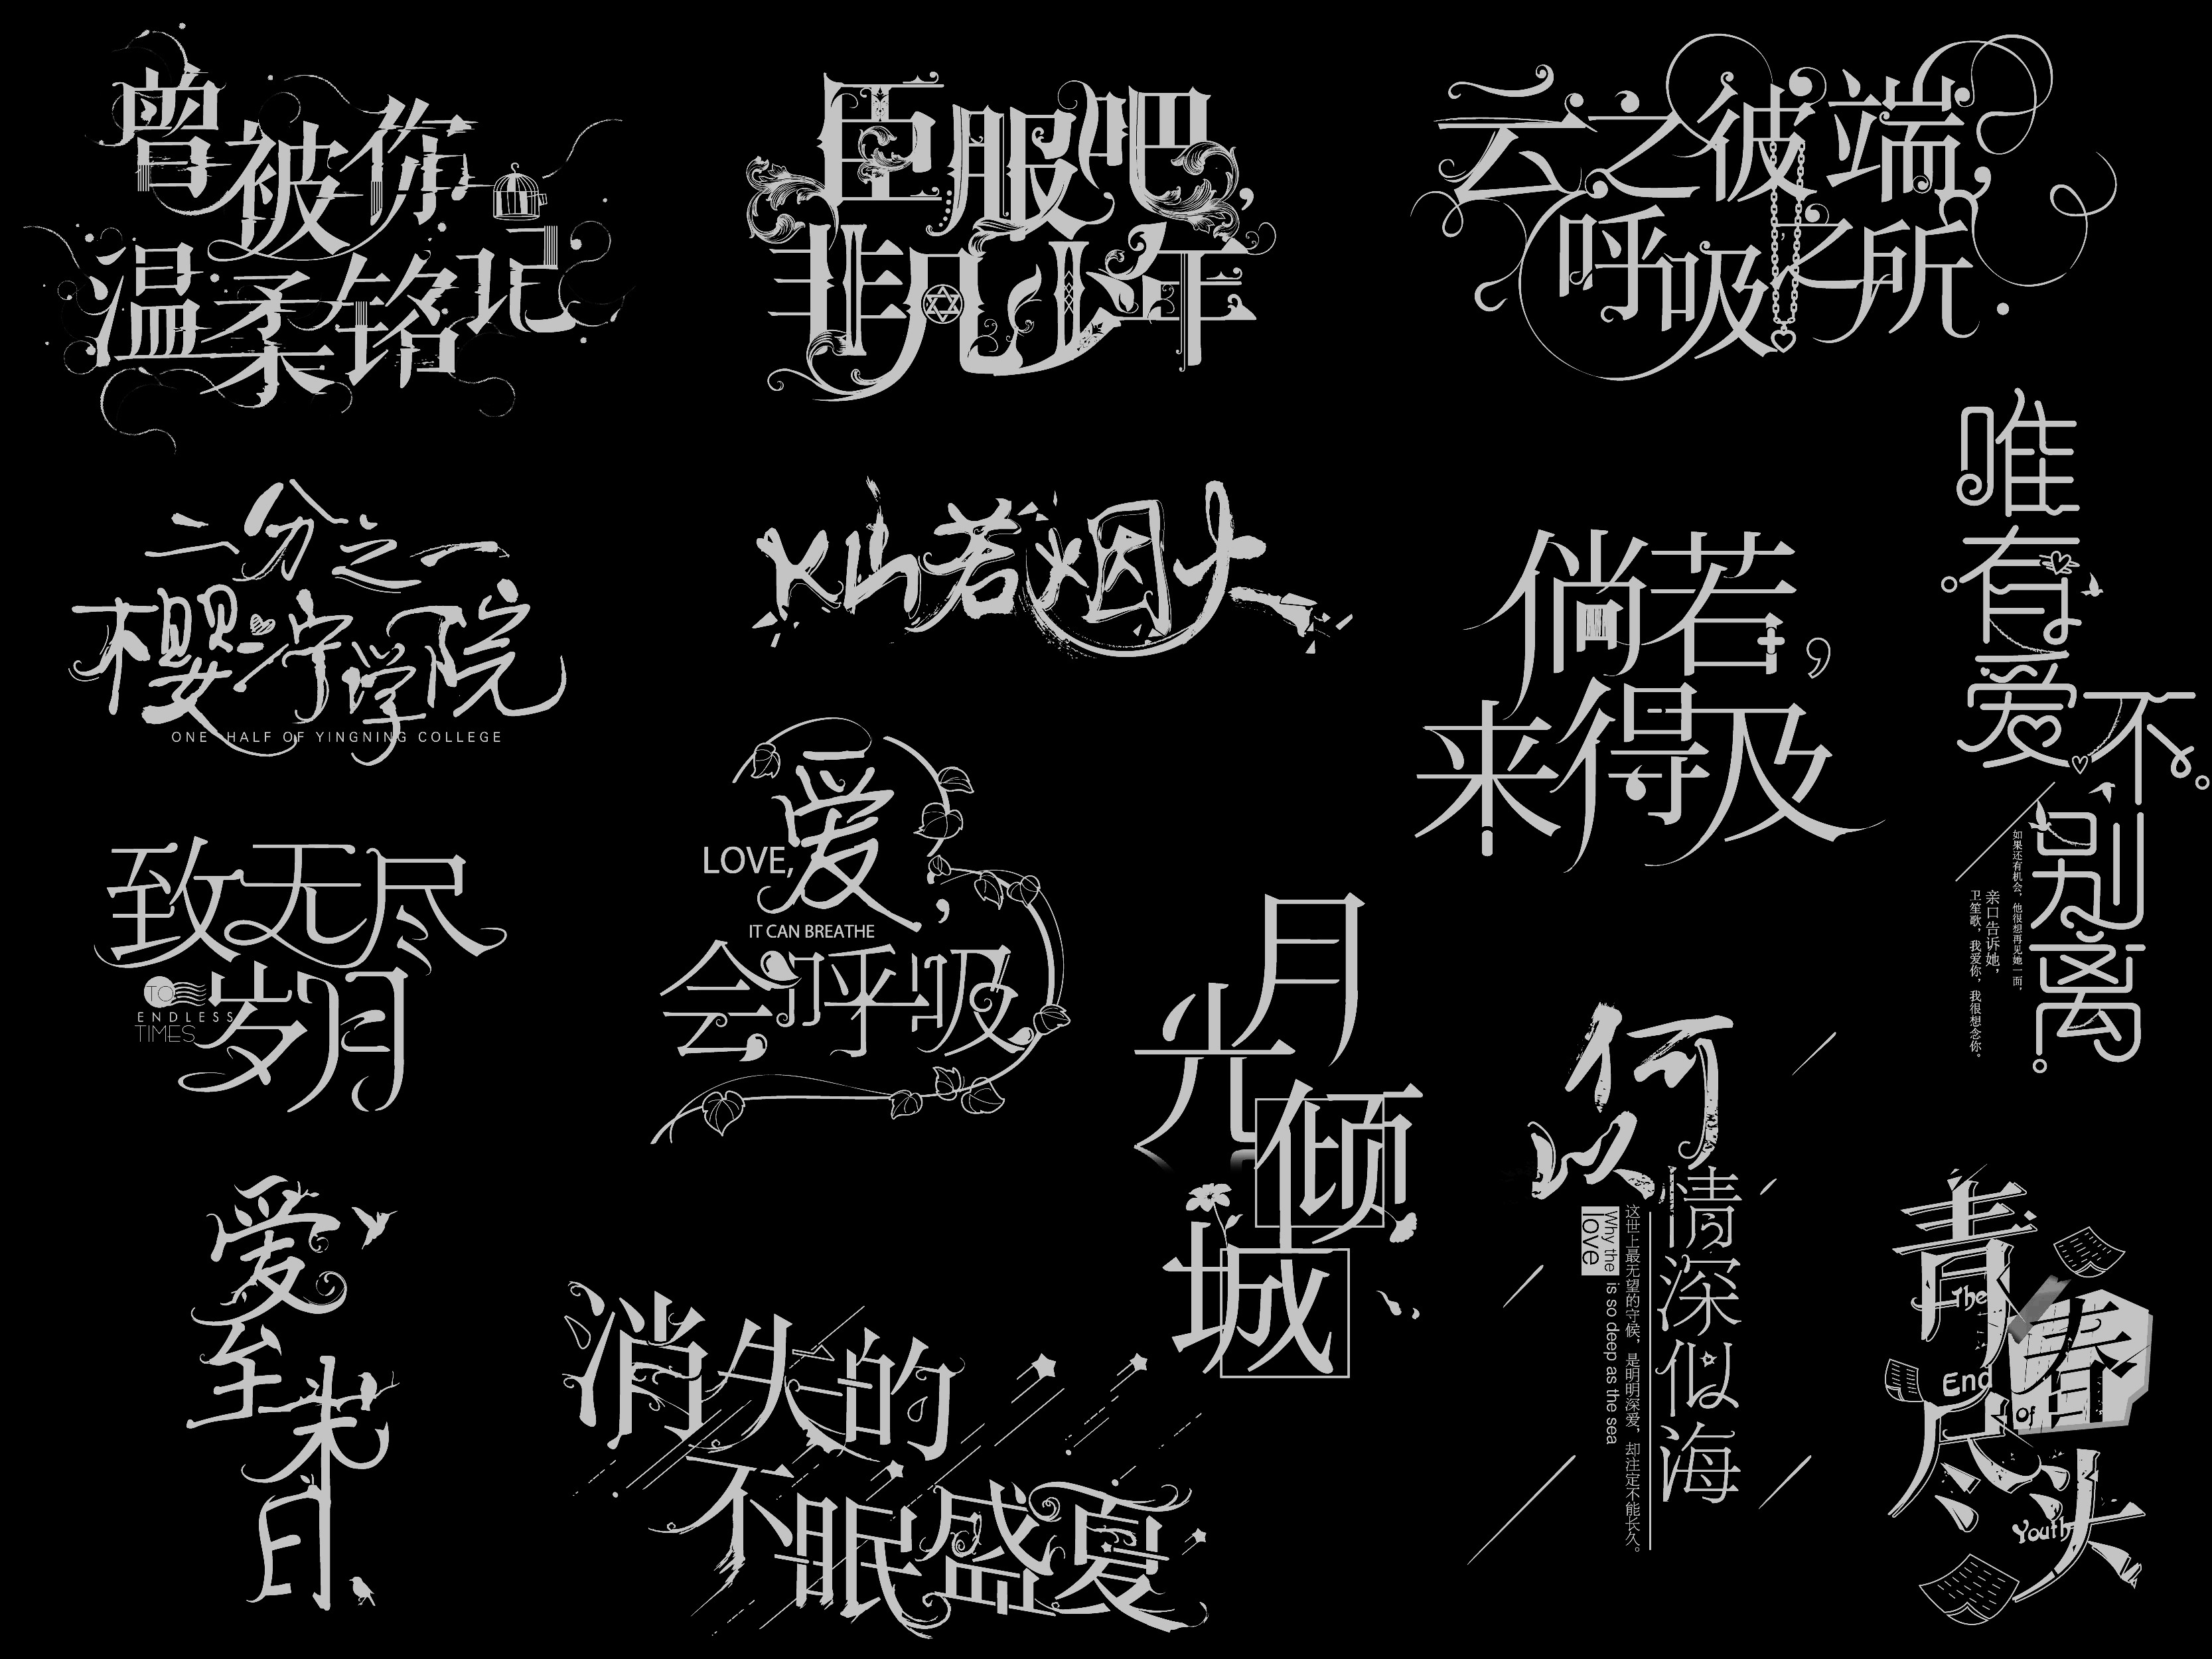 曾被你
温柔铭记
臣服吧，
非凡少年
云之彼端，
呼吸之所
唯有爱
不别离
如果还有机会，他很想再见她一面，
亲口告诉她，
卫笙歌，我爱你，我很想念你。
二分之一
樱泞学院
ONE HALF OF YINGNING COLLEGE
灿若烟火
倘若，
来得及
致无尽
岁月
TO
ENDLESS
TIMES
爱，
LOVE,
IT CAN BREATHE
会呼吸
月光倾城
何以
情深似海
这世上最无望的守候，是明明深爱，却注定不能长久。
Why the
love
is so deep as the sea
爱至未日
消失的
不眠盛夏
青春
尽头
The
End
of
Youth